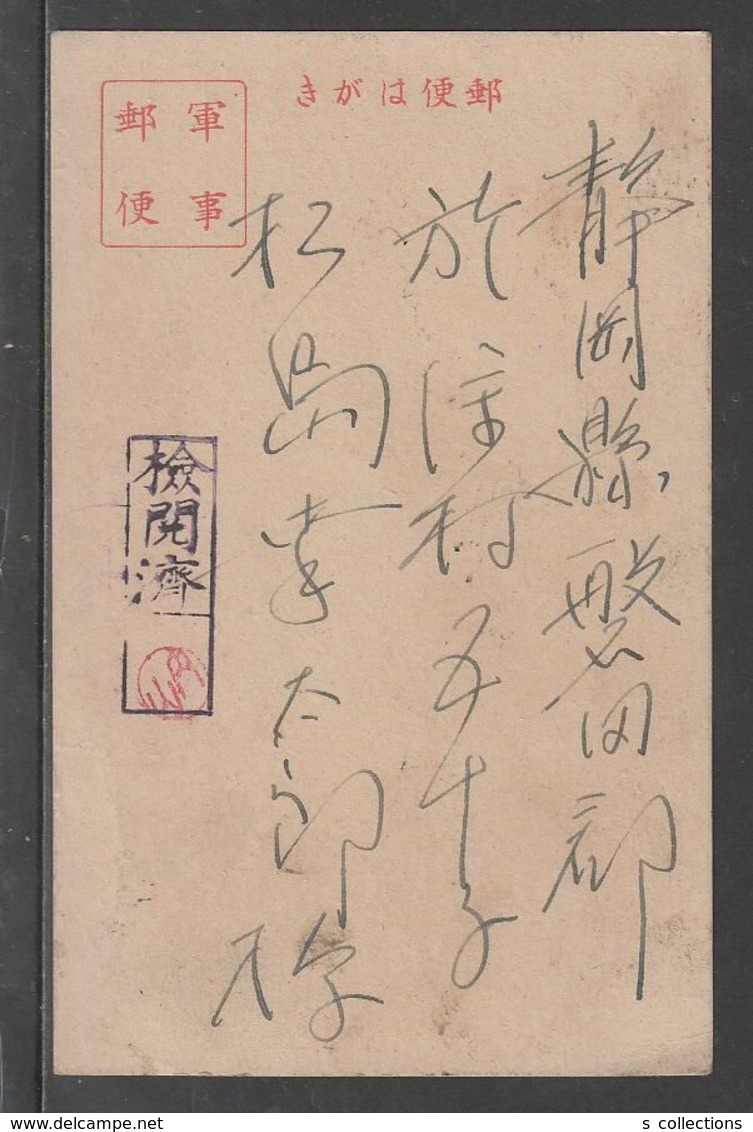 郵便はがき
軍事
郵便
静岡縣磐田郡
於保村五十子
松島幸太郎様
検閲済
s collections
www.delcampe.net